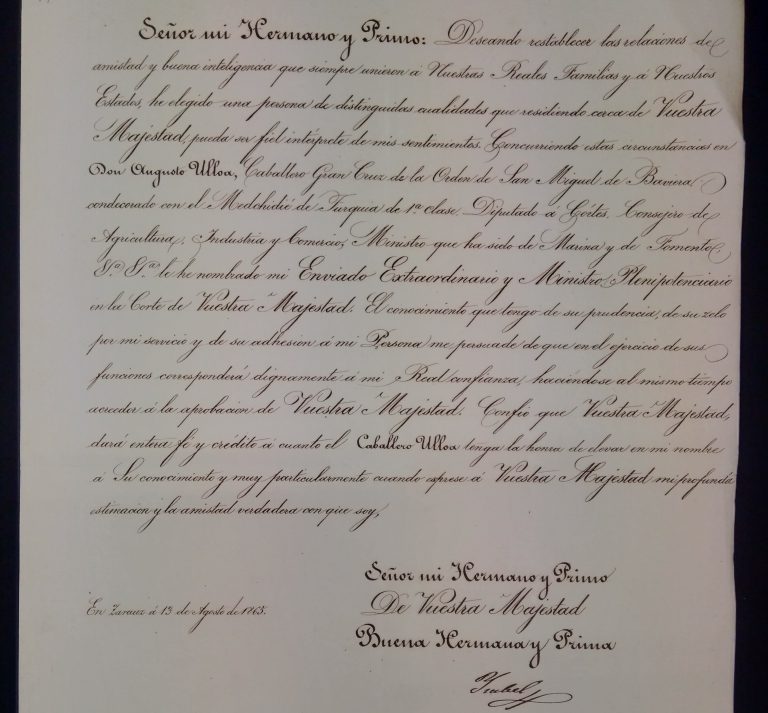 Señor mi Hermano y Primo: Deseando restablecer las relaciones de
amistad y buena inteligencia que siempre unieron á Nuestras Reales Familias y á Nuestros
Estados, he elegido una persona de distinguidas cualidades que residiendo cerca de Vuestra
Majestad, pueda ser fiel intérprete de mis sentimientos. Concurriendo estas circunstancias en
Don Augusto Ulloa, Caballero Gran Cruz de la Orden de San Miguel de Baviera,
condecorado con el Medchidié de Turquia de 1ª clase, Diputado á Córtes, Consejero de
Agricultura, Industria y Comercio, Ministro que ha sido de Marina y de Fomento
&ª &ª le he nombrado mi Enviado Extraordinario y Ministro Plenipotenciario
en la Corte de Vuestra Majestad. El conocimiento que tengo de su prudencia, de su zelo
por mi servicio y de su adhesion á mi Persona me persuade de que en el ejercicio de sus
funciones corresponderá dignamente á mi Real confianza, haciéndose al mismo tiempo
acreedor á la aprobacion de Vuestra Majestad. Confio que Vuestra Majestad,
dará entera fé y crédito á cuanto el Caballero Ulloa tenga la honra de elevar en mi nombre
á Su conocimiento y muy particularmente cuando esprese á Vuestra Majestad mi profunda
estimacion y la amistad verdadera con que soy,
Señor mi Hermano y Primo
En Zarauz á 13 de Agosto de 1865.
De Vuestra Majestad
Buena Hermana y Prima
Isabel